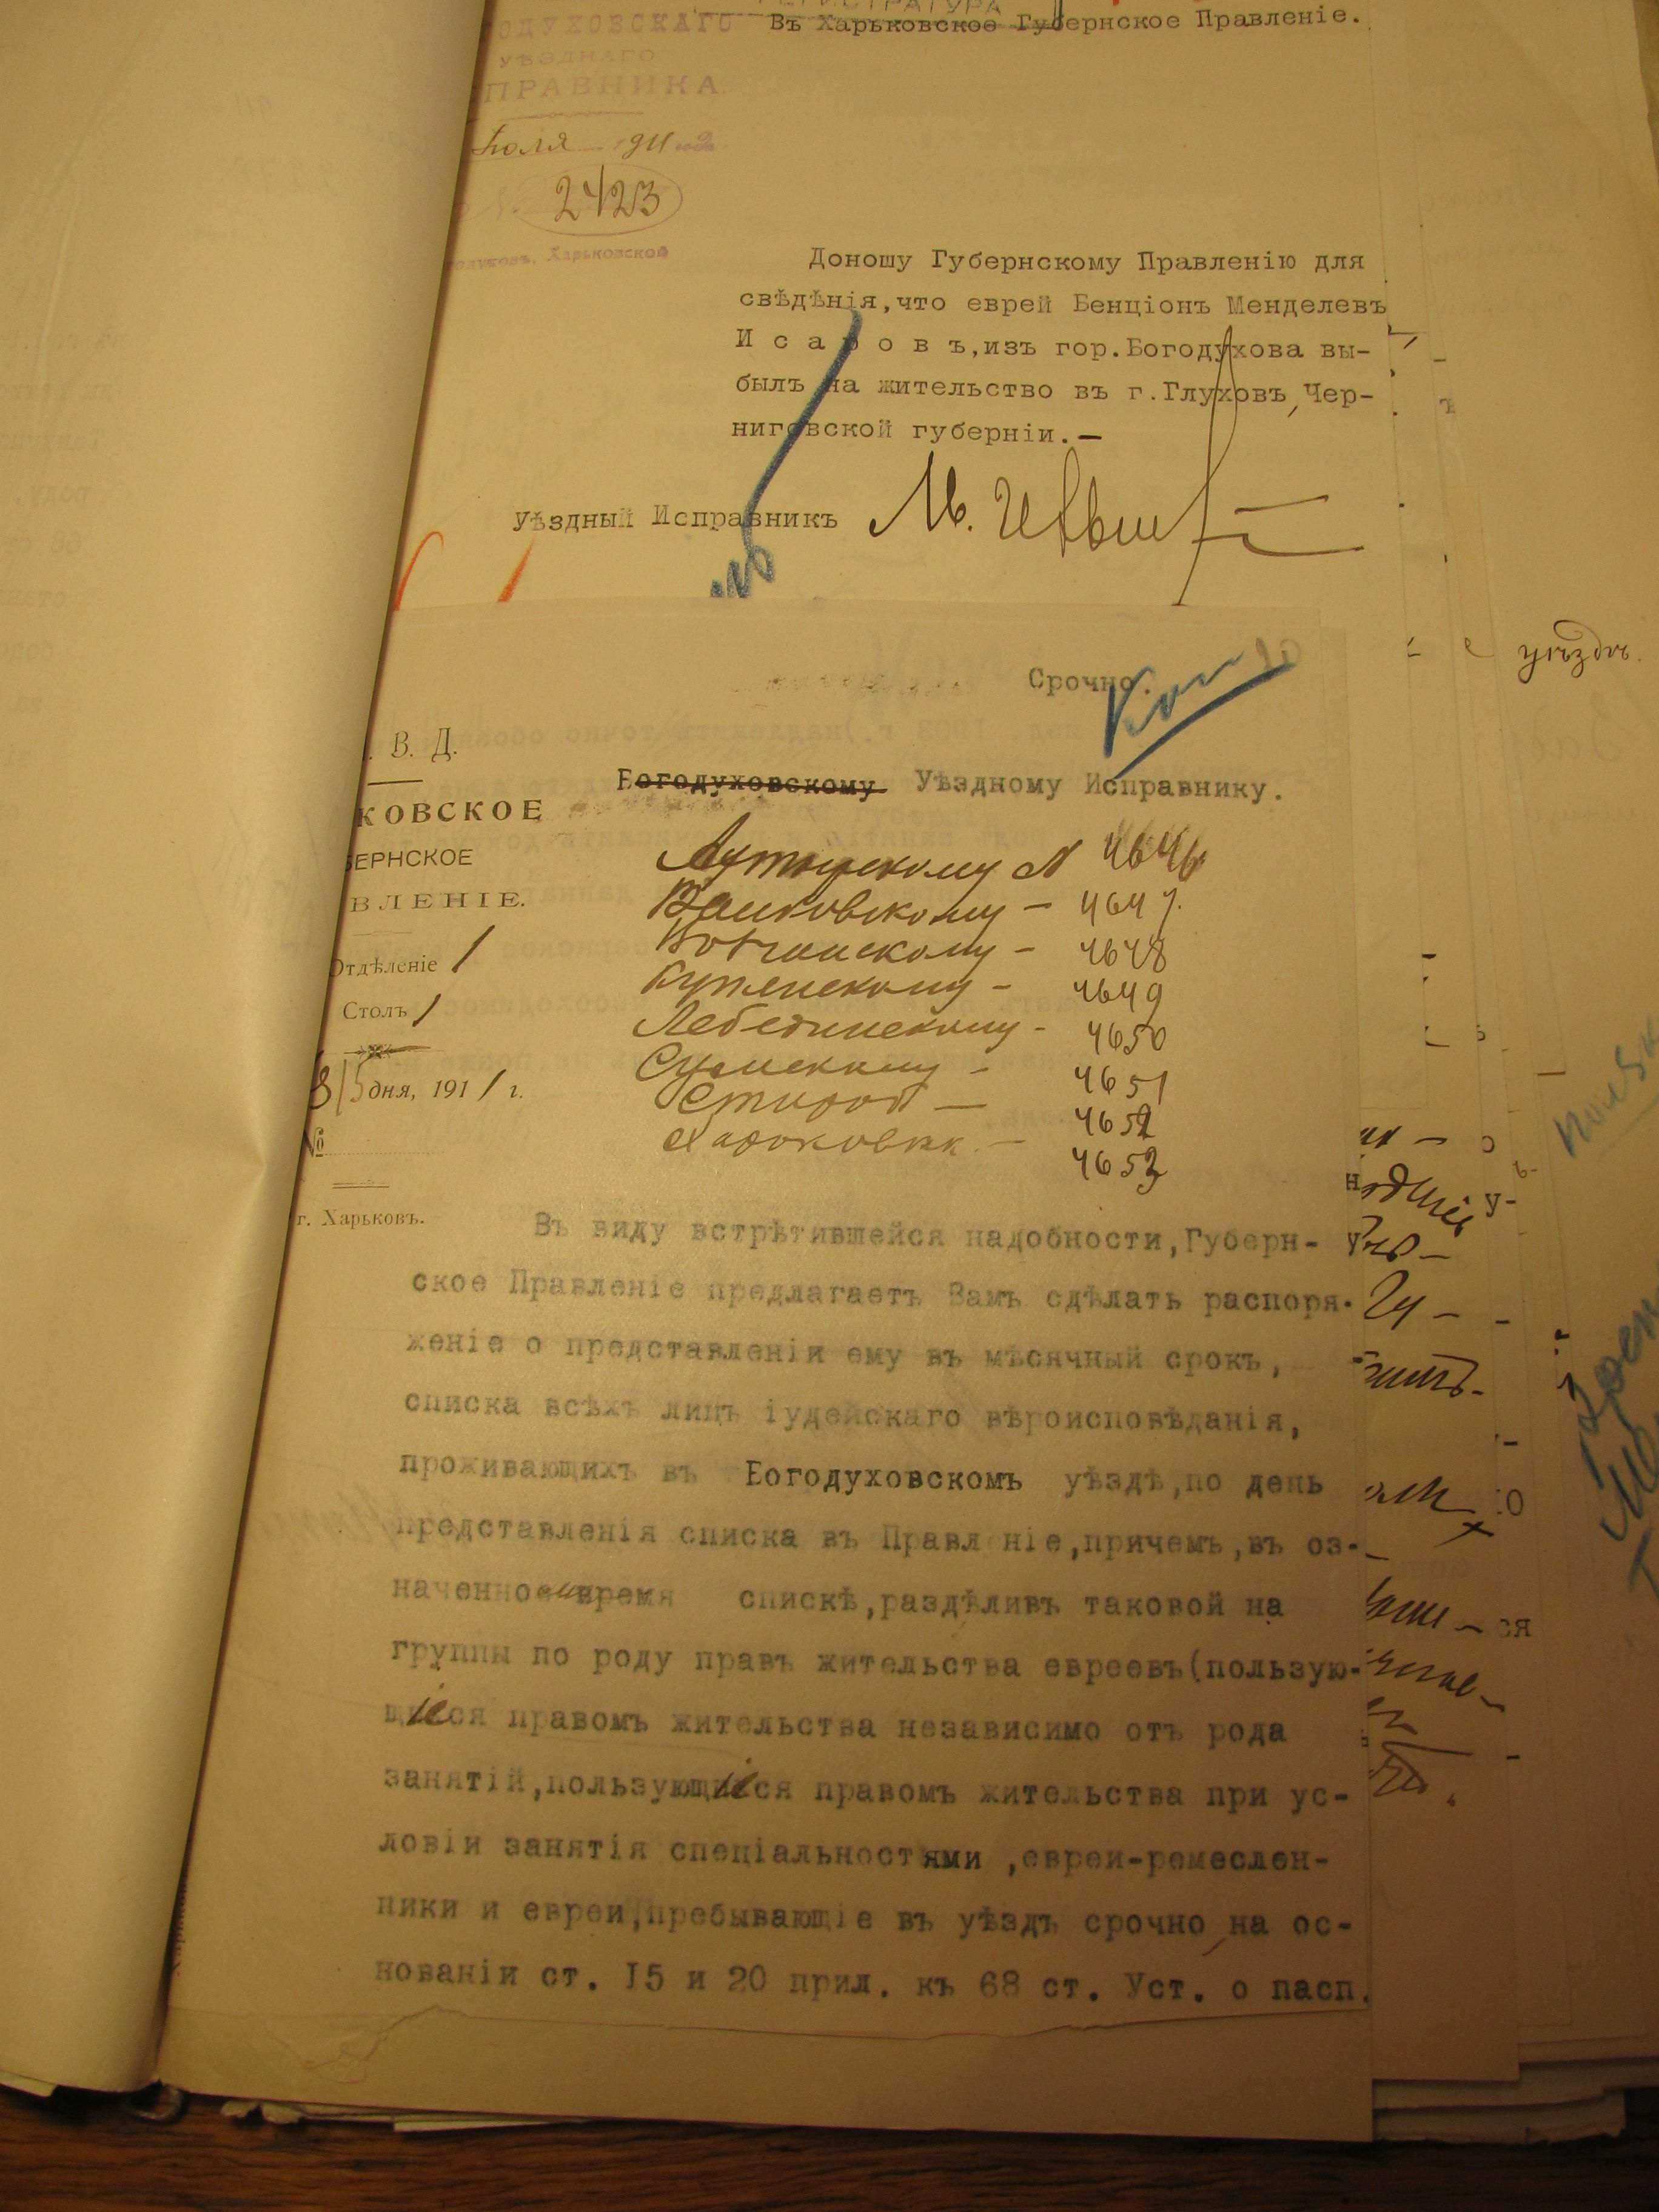 РЕГИСТРАТУРА
Въ Харьковское Губернское Правленіе.
ОДУХОВСКАГО
УѢЗДНАГО
ПРАВНИКА.
Іюля 1911 года
№ 2423
Харьковской
Доношу Губернскому Правленію для
свѣдѣнія,что еврей Бенціонъ Менделевъ
И с а р о в ъ,изъ гор.Богодухова вы-
былъ на жительство въ г.Глуховъ,Чер-
ниговской губерніи.—
Уѣздный Исправникъ
уѣздъ.
Срочно.
. В. Д.
КОВСКОЕ
БЕРНСКОЕ
ВЛЕНІЕ.
Отдѣленіе 1
Столъ 1
15 дня, 1911 г.
№
г. Харьковъ.
Богодуховскому Уѣздному Исправнику.
Ахтырскому № 4646
Валковскому – 4647.
Волчанскому – 4648
Купянскому – 4649
Лебединскому - 4650
Сумскому - 4651
Староб – 4652
Харьковск. – 4653
Въ виду встрѣтившейся надобности,Губерн-
ское Правленіе предлагаетъ Вамъ сдѣлать распоря-
женіе о представленіи ему въ мѣсячный срокъ,
списка всѣхъ лицъ іудейскаго вѣроисповѣданія,
проживающихъ въ Богодуховскомъ уѣздѣ,по день
представленія списка въ Правленіе,причемъ,въ оз-
наченномъ время спискѣ,раздѣливъ таковой на
группы по роду правъ жительства евреевъ(пользую-
щіеся правомъ жительства независимо отъ рода
занятій,пользующіеся правомъ жительства при ус-
ловіи занятія спеціальностями ,евреи-ремеслен-
ники и евреи,пребывающіе въ уѣздъ срочно,на ос-
нованіи ст. I5 и 20 прил. къ 68 ст. Уст. о пасп.